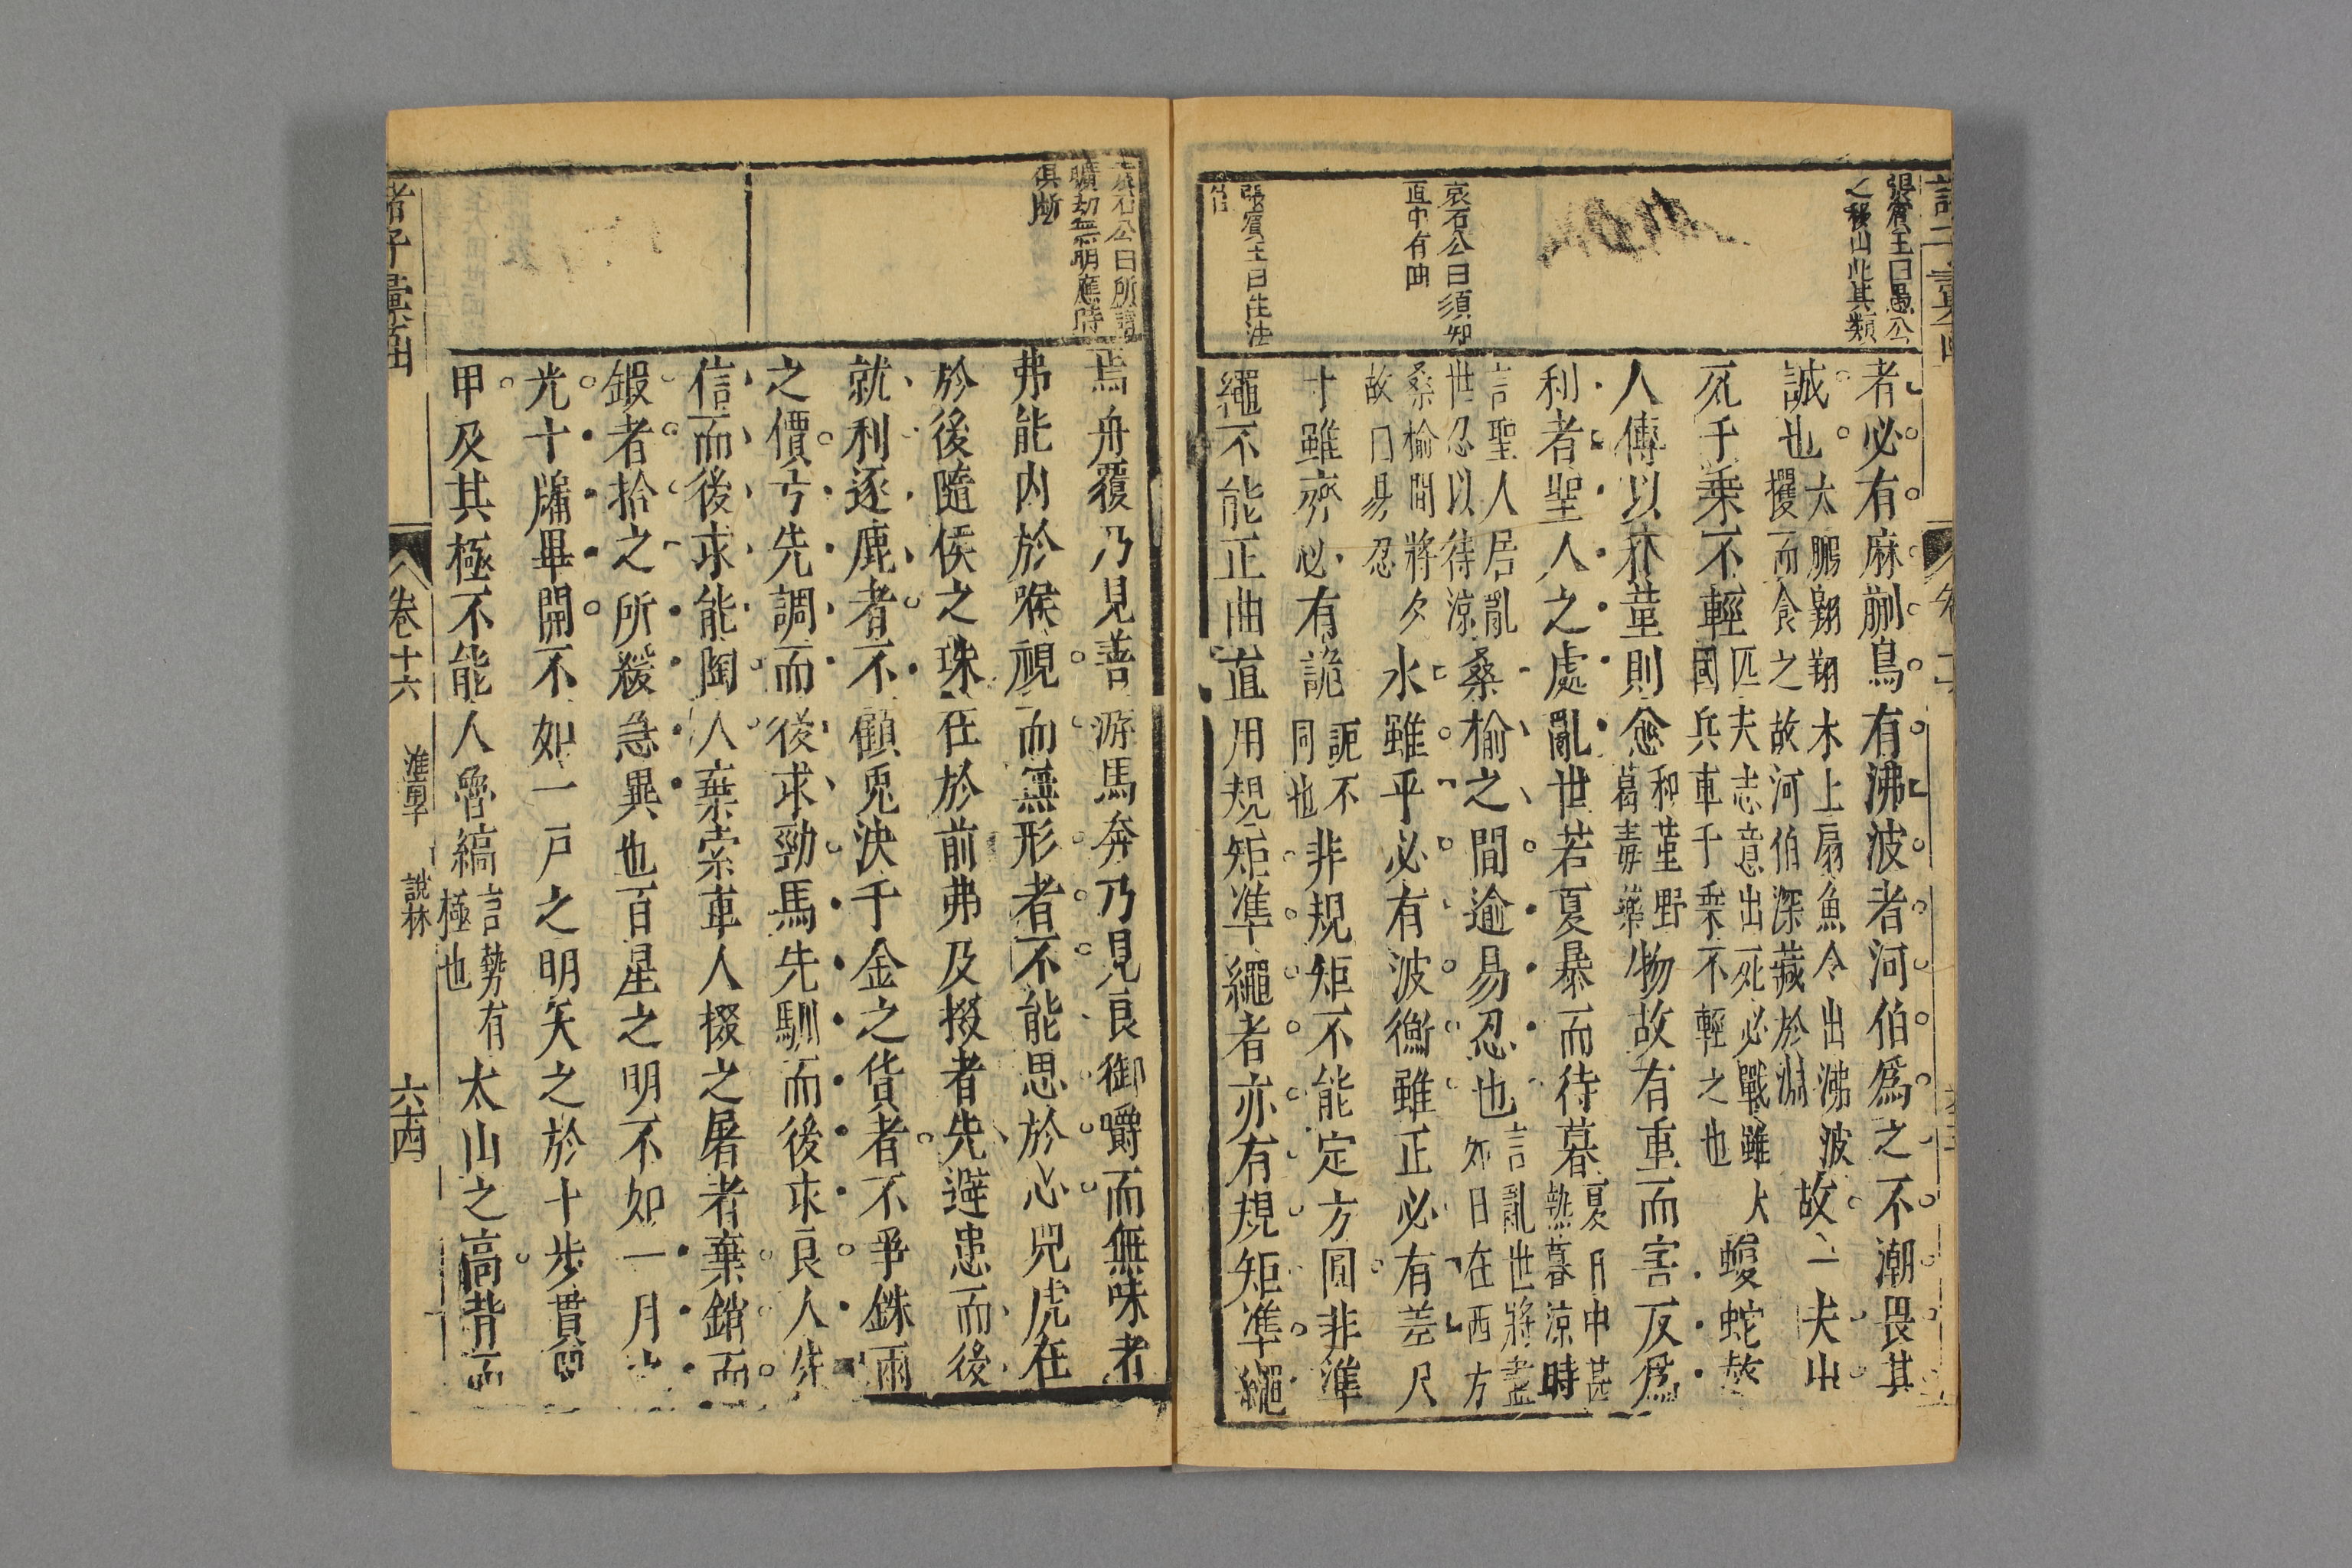 張賓王曰愚公
之移山此其類
袁石公曰須知
直中有曲
張賓王曰生法
者必有麻蒯鳥有沸波者河伯爲之不潮畏其
誠也太鵬翱翔水上扇魚令出沸波
攫而食之故河伯深藏於淵故一夫出
死千乗不輕匹夫志意出死必戰雖大
國兵車千乗不輕之也蝮蛇螫
人傅以和堇則愈和堇野
葛毒藥物故有重而害反爲
利者聖人之處亂世若夏暴而待暮夏月中甚
熱暮涼時
言聖人居亂
世忍以待涼桑榆之間逾易忍也言亂世將盡
如日在西方
桑榆間將夕
故曰易忍水雖平必有波衡雖正必有差尺
寸雖齊必有詭詭不
同也非規矩不能定方圓非準
繩不能正曲直用規矩準繩者亦有規矩準繩
袁石公曰所謂
曠劫無明應時
俱斷
焉舟覆乃見善游馬奔乃見良御嚼而無味者
弗能内於喉視而無形者不能思於心兕虎在
於後隨侯之珠在於前弗及掇者先避患而後
就利逐鹿者不顧兎決千金之貨者不爭銖兩
之價弓先調而後求勁馬先馴而後求良人先
信而後求能陶人棄索車人掇之屠者棄銷而
鍜者拾之所緩急異也百星之明不如一月之
光十牖畢開不如一戸之明矢之於十步貫兕
甲及其極不能入魯縞言勢有
極也太山之高背而
諸子彙函
卷十六
淮南
說林
六四